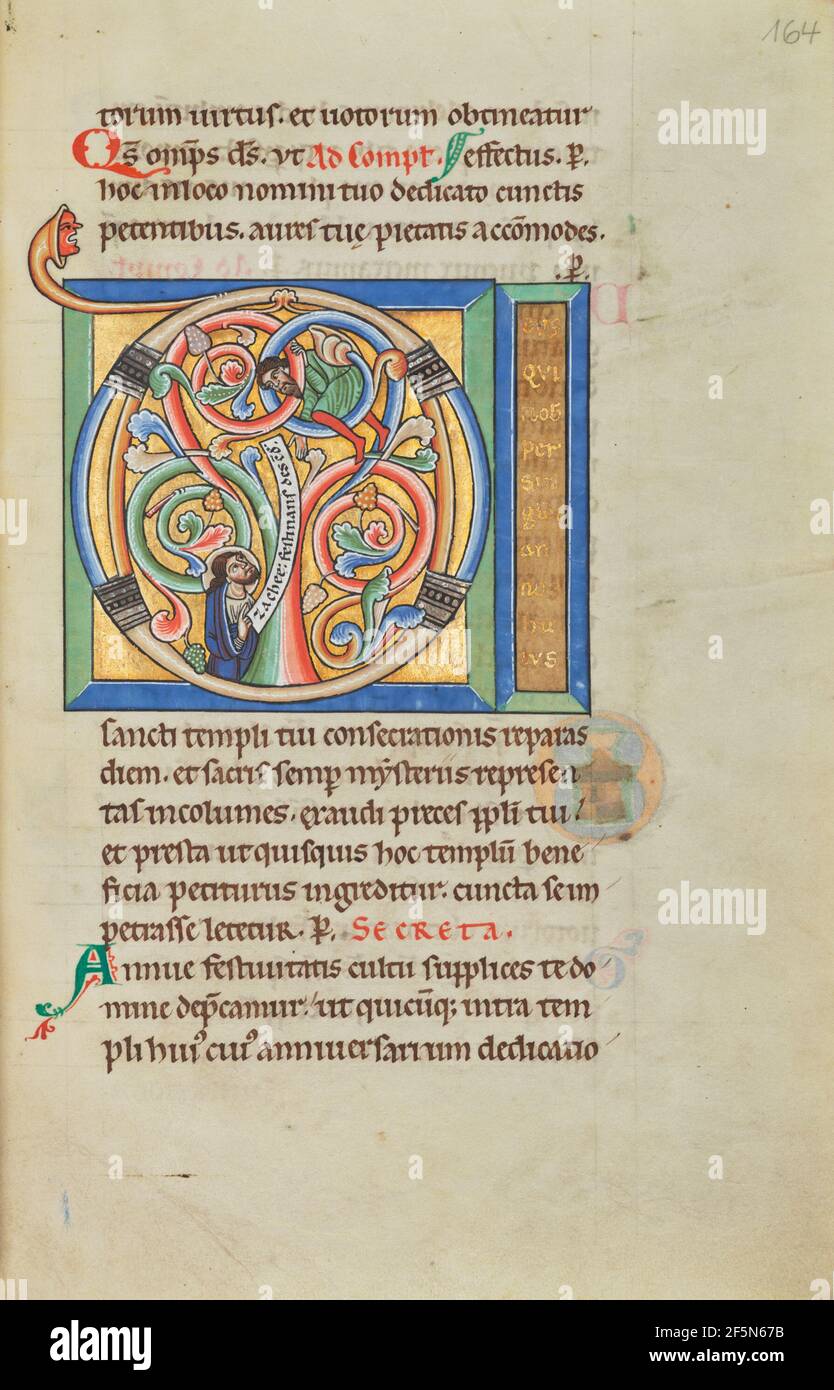 164
torum uirtus. et uotorum obtineatur
Qs̄ omp̄s ds̄. ut Ad Compt. effectus. P.
hoc in loco nomini tuo dedicato cunctis
petentibus. aures tuę pietatis accōmodes.
P.
eus
QVI
nob
per
sin
gu
an
nos
hu
ius
zachee; festinans desc̄d
sancti templi tui consecrationis reparas
diem. et sacris semp̄ mẏsteriis represen
tas incolumes. exaudi preces ppl̄i tui.
et presta ut quisquis hoc templū bene
ficia petiturus ingreditur. cuncta se im
petrasse letetur. P. SECRETA.
Annue festiuitatis cultu supplices te do
mine dep̄camur. ut quicūq; intra tem
pli hui' cui' anniuersarium dedicatio
alamy
Image ID: 2F5N67B
www.alamy.com